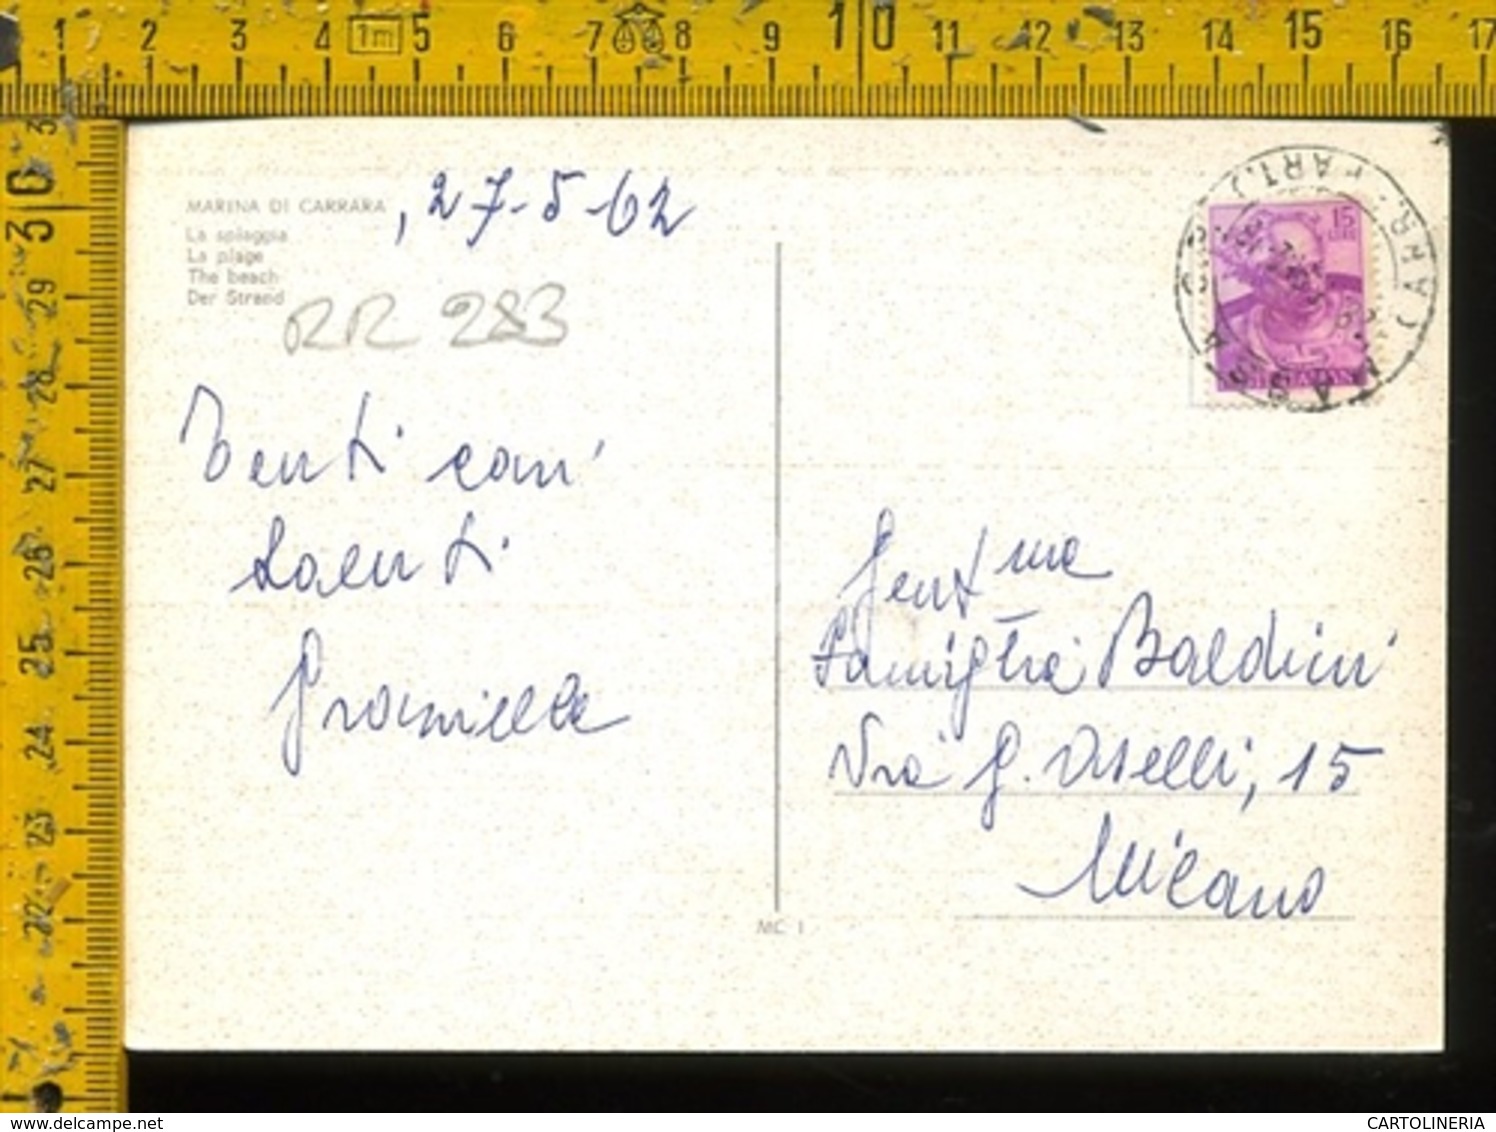 1 2 3 4 1m 5 6 7 8 9 10 11 12 13 14 15 16 17
3
30
29
28
27
26
25
24
23
22
MARINA DI CARRARA , 27-5-62
La spiaggia
La plage
The beach
Der Strand
RR 283
Tenti cari
saluti
Graziella
15
MASSA CARR.
Gent.me
Famiglia Baldini
Via G. Aselli, 15
Milano
MC 1
www.delcampe.net
CARTOLINERIA